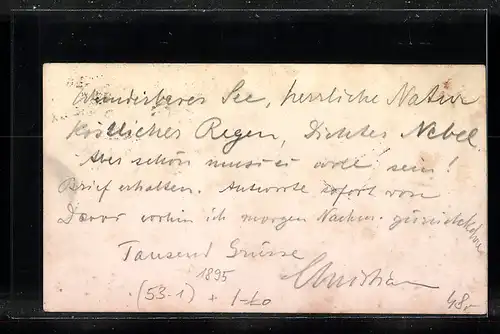 Wunderbarer See, herrliche Natur
köstlicher Regen, Dichter Nebel
Aber schön muss es sein!
Brief erhalten. Antworte sofort von
Davos wohin ich morgen Nachm.
Tausend Grüsse
1895 Christian
(53-1) + 1=ko 48.-